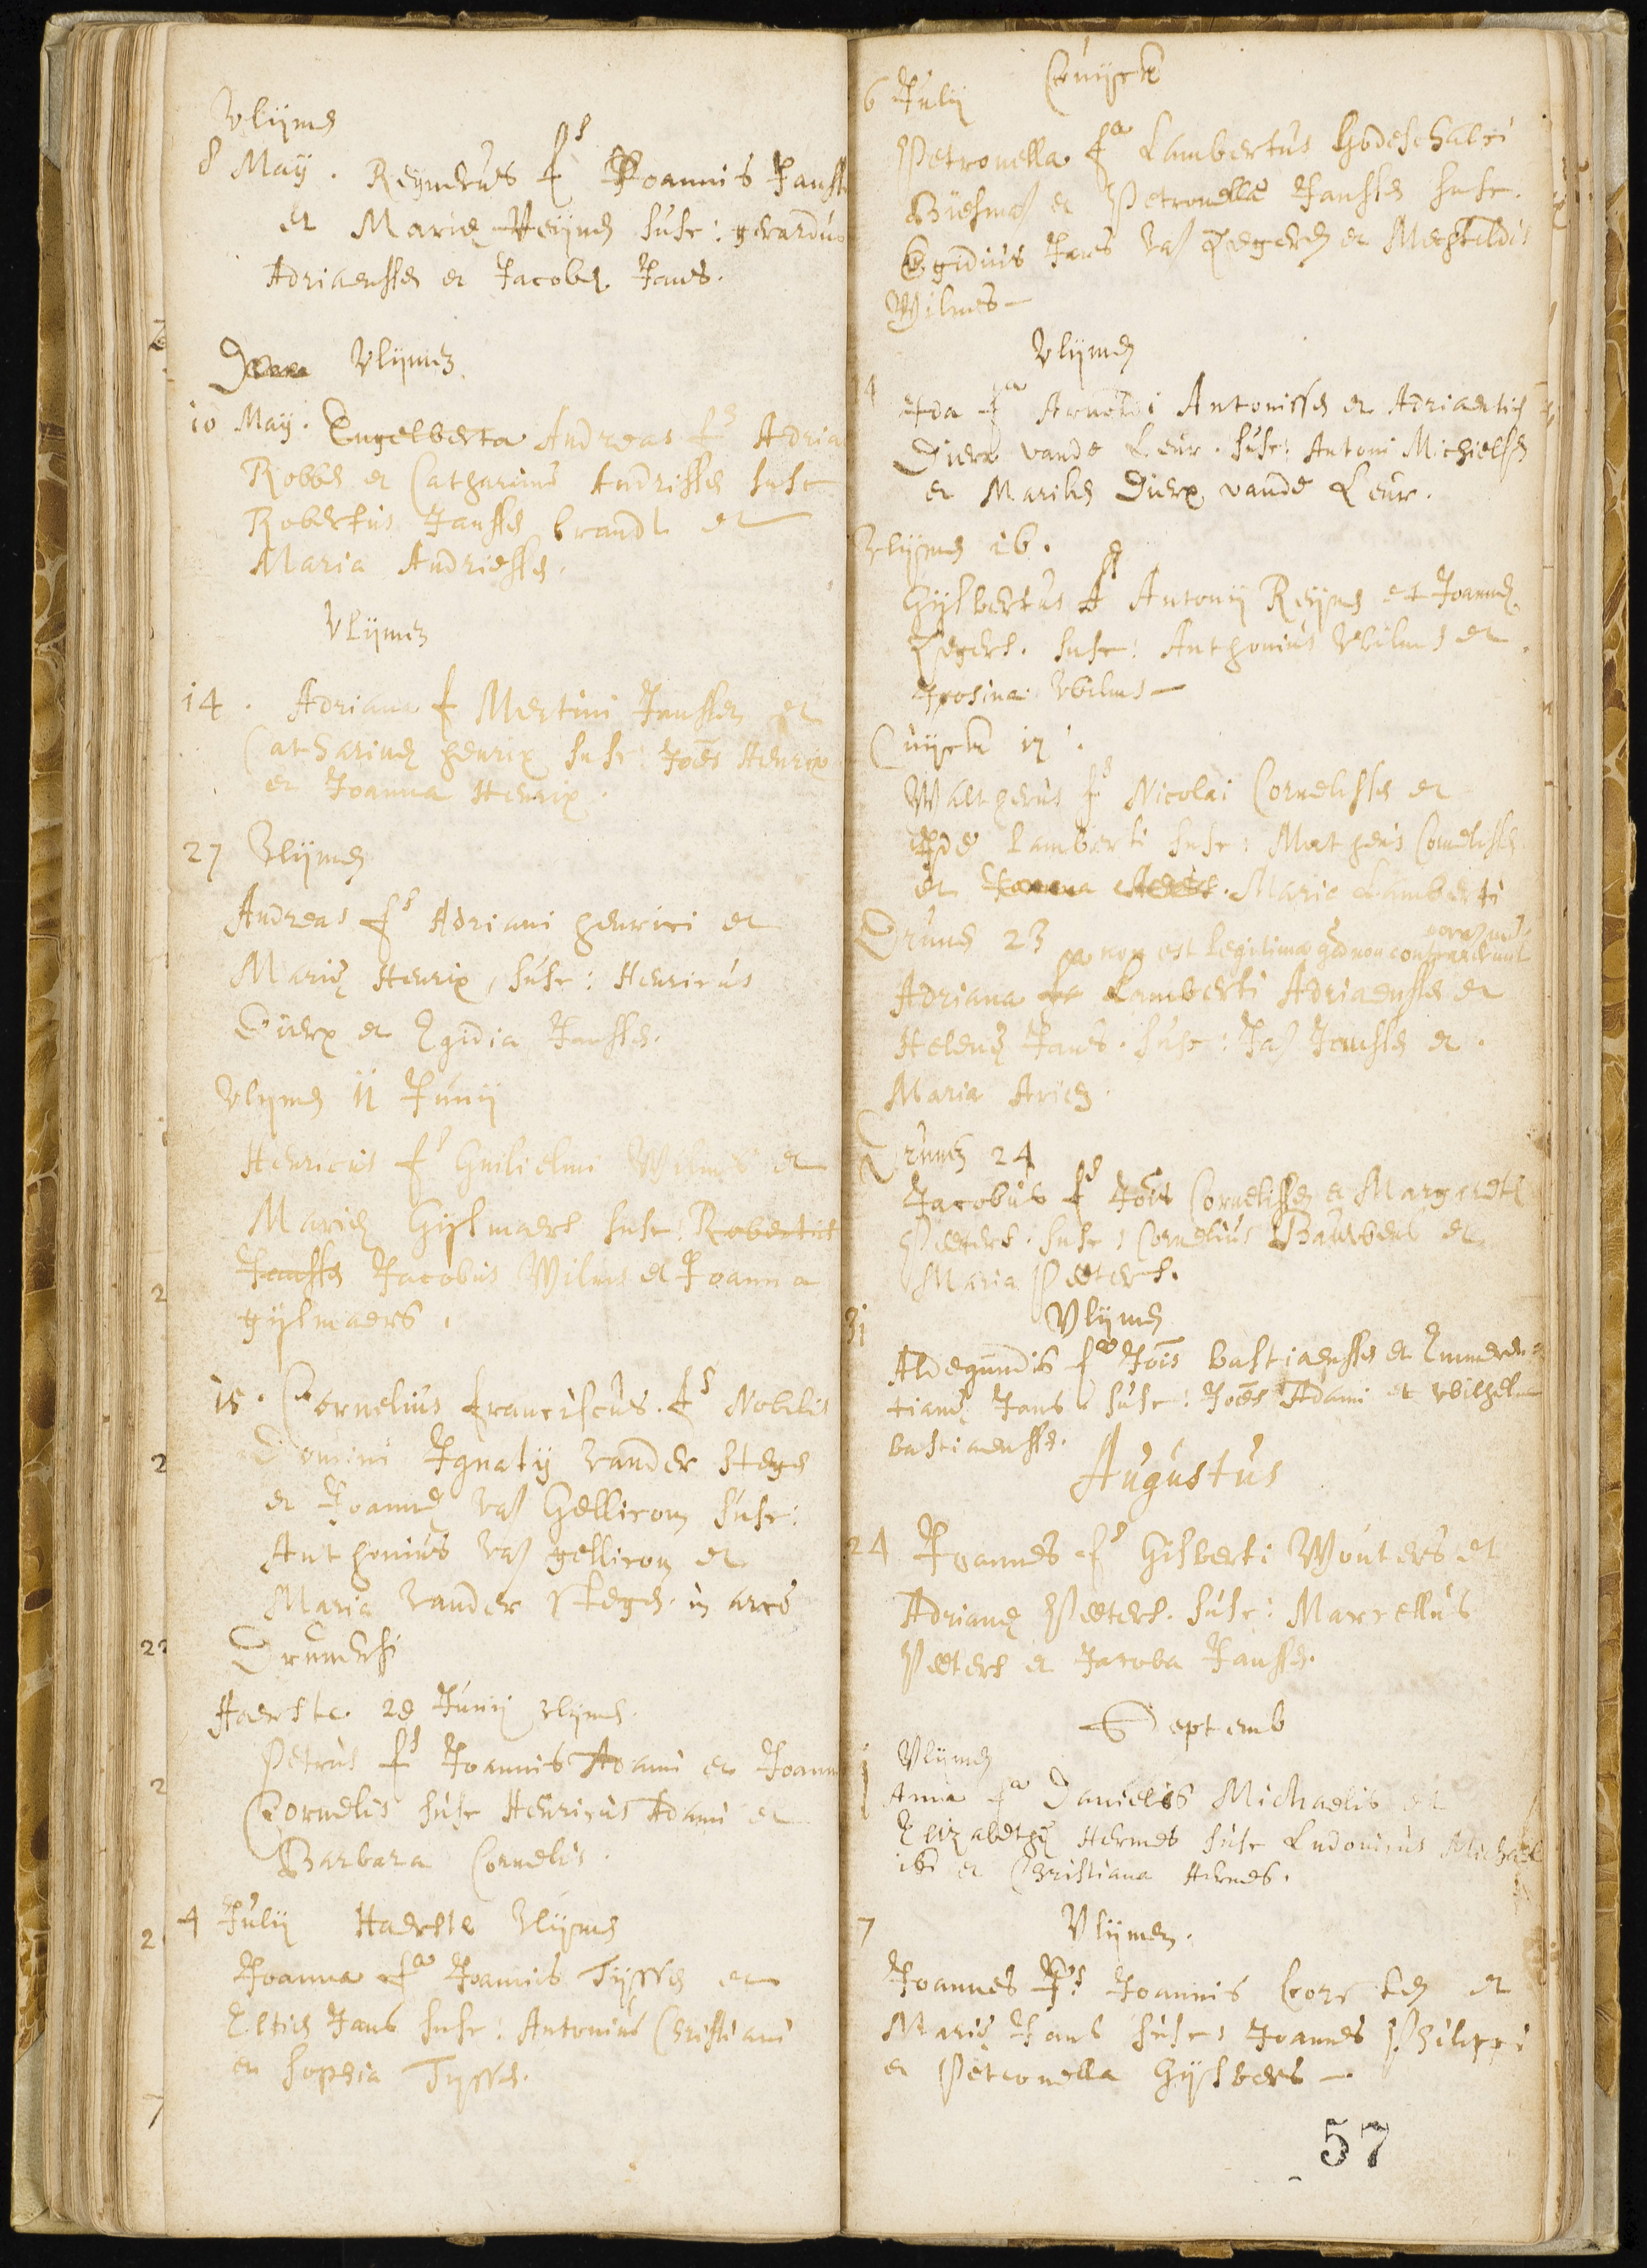 Vlijmen
8 May. Reynerus fs Joannis Janssen
et Mariæ Reijnen susc: gerardus
Adriaenssen et Jacoba Jans.
Vlijmen
10 May. Engelberta Andreas fs Adria
Robben et Catharinæ Andrissen susc
Robertus Janssen brandt et
Maria Andriessen.
Vlijmen
14. Adriana f Mertini Janssen et
Catharinæ henrix susc: Joēs Henrix
et Joanna Henrix.
27 Vlijmen
Andreas fs Adriani henrici et
Mariæ Henrix, susc: Henricus
Dierx et Egidia Janssen.
Vlijmen 11 Junij
Henricus fs Guilielmi Wilms et
Mariæ Gijsmaers susc: Robertus
Janssen Jacobus Wilms et Joanna
gijsmaers.
15. Cornelius franciscus. fs Nobilis
Domini Ignatij vander Stege
et Joannæ van Gellicom susc:
Anthonius van gellicom et
Maria vander Stegen. in arce
Drunensi
Haerste. 28 Junij vlijmen.
Petrus fs Joannis Adami et Joann
Cornelis susc Henricus Adami et
Barbara Cornelis.
4 Julij Haerste Vlijmen
Joanna fa Joannis Tijssen et
Eltien Jans susc: Antonius Christiani
et sophia Tijssen.
6 Julij Cuijck
Petronella fa Lambertus Godeschalci
et Petronellæ Janssen susc.
Egidius Jans van Zegeren et Mechtildis
Wilmes
Vlijmen
14 fa Arnoldi Antonissen et Adriaentien
Dierx vande Leur. susc: Antoni Michielsen
et Mariken Dierx vande Leur.
Vlijmen 16.
Gijsbertus fs Antonij Reijnen et Joannæ
Zegers. susc: Anthonius Wilms et
Wilms
Cuijck 17.
Waltherus fs Nicolai Cornelissen et
Idæ Lamberti susc: Matheus Cornelissen
et Joanna Marie Lamberti
Drunen 23 non est legitima qd non contraxerunt
Adriana fa Lamberti Adriaenssen et
Helenæ Jans. susc: Jan Janssen et.
Maria Arien.
Drunen 24
Jacobus fs Joīs Cornelissen et Margaretæ
Peeters. susc: Cornelius et
Maria Peeters.
31 Vlijmen
Aldegundis fa Joīs bastiaenssen et Emmeren
tianæ Jans susc: Joēs Adami et Wilhelm
bastiaenssen.
Augustus
24 Joannes fs Gisberti Wouters et
Adrianæ Peeters. susc: Marcellus
Peeters et Jacoba Janssen.
Septemb
1 Vlijmen
Anna fa Danielis Michaelis et
Elizabethæ Hermes susc Ludovicus Michael
is et Christiana Hermes.
7 Vlijmen.
Joannes fs Joannis Corsten et
Mariæ Jans susc: Joannes Philippi
et Petronella Gijsbers
57